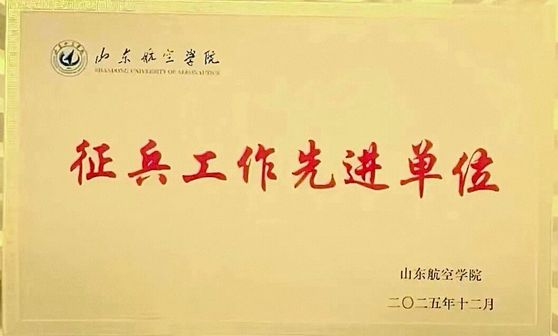 山东航空学院
SHANDONG UNIVERSITY OF AERONAUTICS
征兵工作先进单位
山东航空学院
二〇二五年十二月